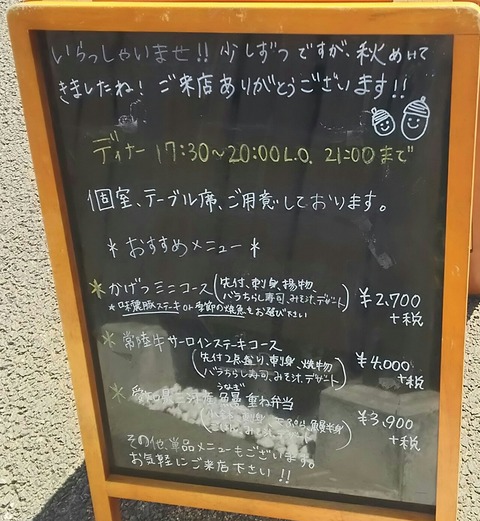 いらっしゃいませ!! 少しずつですが、秋めいて
きましたね! ご来店ありがとうございます!!
ディナー 17:30〜20:00 L.O. 21:00まで
個室、テーブル席、ご用意しております。
*おすすめメニュー*
*かげつミニコース(先付、刺身、揚物
バラちらし寿司、みそ汁、デザート) ¥2,700
*味麗豚ステーキor季節の焼魚をお選び下さい +税
*常陸牛サーロインステーキコース
(先付2点盛り、刺身、焼物 ¥4,000
バラちらし寿司、みそ汁、デザート) +税
うなぎ
*愛知県三河産 鰻 重ね弁当
刺身 鰻半身 ¥3,900
+税
その他、単品メニューもございます。
お気軽にご来店下さい!!